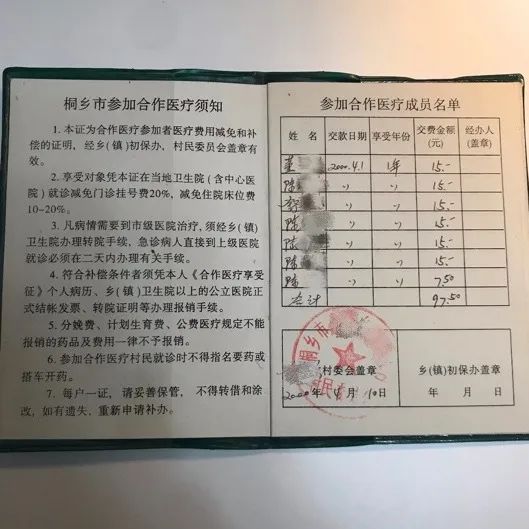 桐乡市参加合作医疗须知
1. 本证为合作医疗参加者医疗费用减免和补
偿的证明，经乡(镇)初保办，村民委员会盖章有
效。
2. 享受对象凭本证在当地卫生院(含中心医
院)就诊减免门诊挂号费20%，减免住院床位费
10-20%。
3. 凡病情需要到市级医院治疗，须经乡(镇)
卫生院办理转院手续，急诊病人直接到上级医院
就诊必须在二天内办理有关手续。
4. 符合补偿条件者须凭本人《合作医疗享受
证》个人病历、乡(镇)卫生院以上的公立医院正
式结帐发票、转院证明等办理报销手续。
5. 分娩费、计划生育费、公费医疗规定不能
报销的药品及费用一律不予报销。
6. 参加合作医疗村民就诊时不得指名要药或
搭车开药。
7. 每户一证，请妥善保管，不得转借和涂
改，如有遗失，重新申请补办。
参加合作医疗成员名单
姓 名 交款日期 享受年份 交费金额(元) 经办人(盖章)
2000.4.1 1年 15.-
陈 〃 〃 15.-
〃 〃 15.-
陈 〃 〃 15.-
陈 〃 〃 15.-
陈 〃 〃 15.-
陈 〃 〃 7.50
合计 97.50
桐乡市
村委会盖章
2000年 4 月 10日
乡(镇)初保办盖章
年 月 日